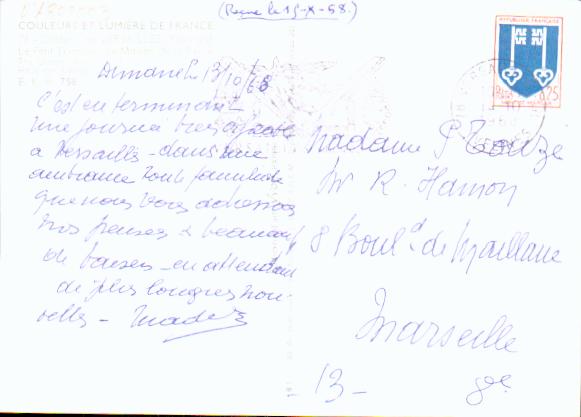 (Reçue le 15-X-68.)
COULEURS ET LUMIERE DE FRANCE
REPUBLIQUE FRANÇAISE
0,25
Dimanche 13/10/68
C'est en terminant
une journée très agréable
à Versailles - dans une
ambiance toute familiale
que nous vous adressons
nos pensées & beaucoup
de baisers - en attendant
de plus longues nou-
velles -
Madame P
chez R. Hamon
8 Boul^d de Maillane
Marseille
- 13 - 8e